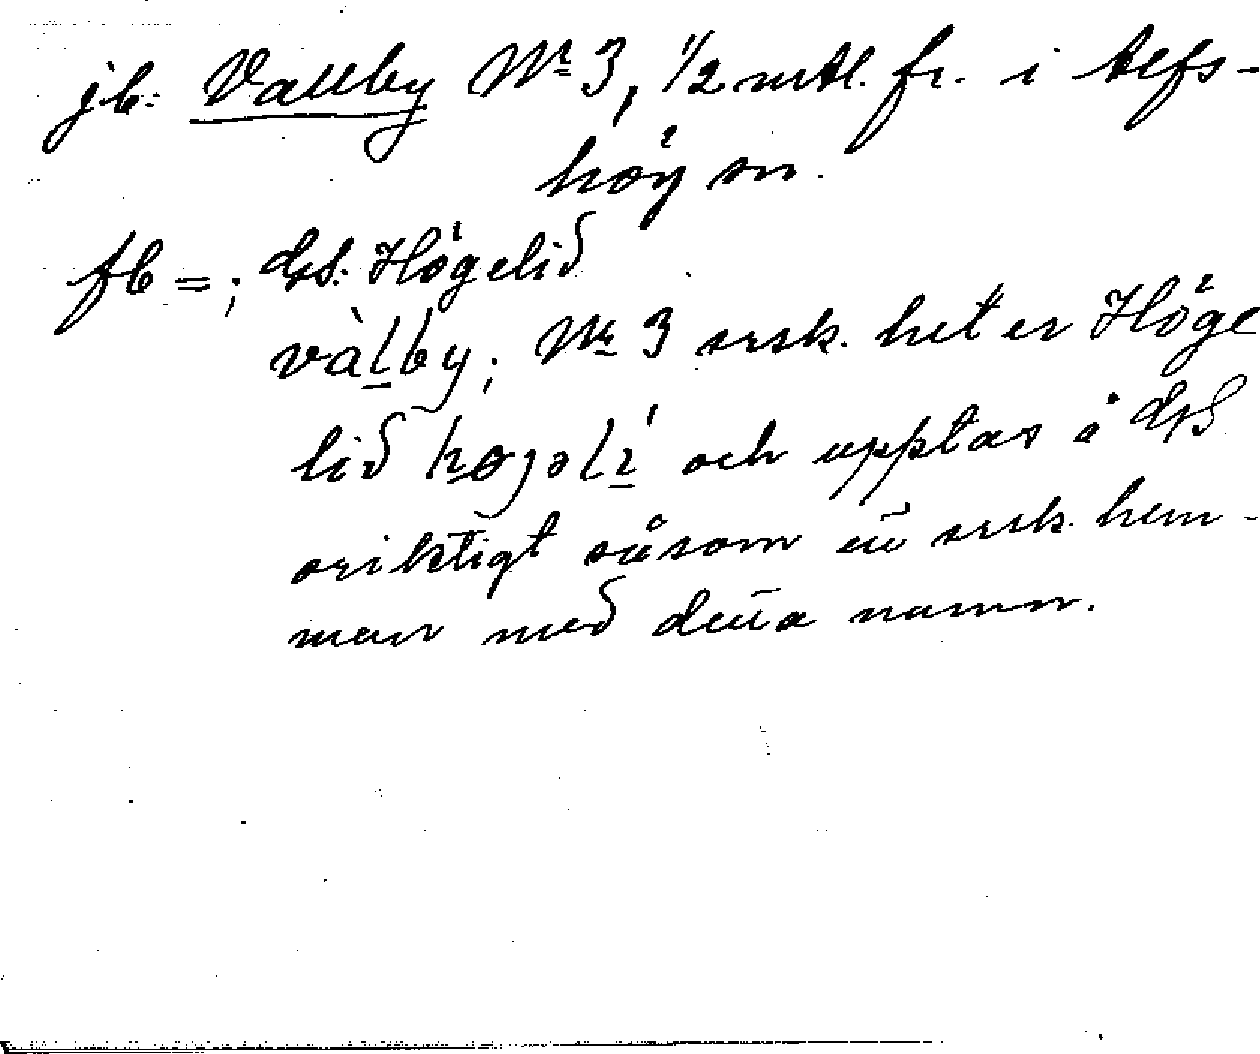 jb: Vallby Nr 3, 1/2 mtl. fr. i Alfs-
hög sn.
fb =; gs: Högelid
vàlby; Nr 3 srsk. heter Höge
lid høgəlí och upptas å gs
oriktigt såsom eñ srsk. hem-
man med deña namn.